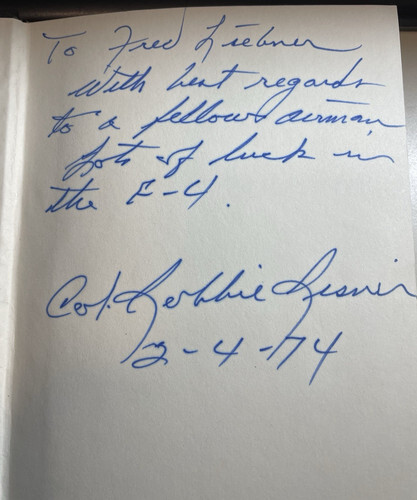 To Fred Liebner
With best regards
to a fellow airman,
Lots of luck in
the F-4.
Col. Robbie Risner
12-4-74